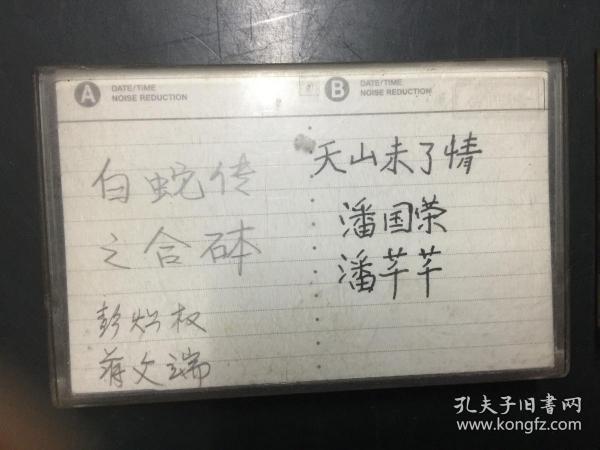 A
DATE/TIME
NOISE REDUCTION
B
DATE/TIME
NOISE REDUCTION
白蛇传
之合砵
彭炽权
蒋文端
天山未了情
潘国荣
潘芊芊
孔夫子旧書网
www.kongfz.com